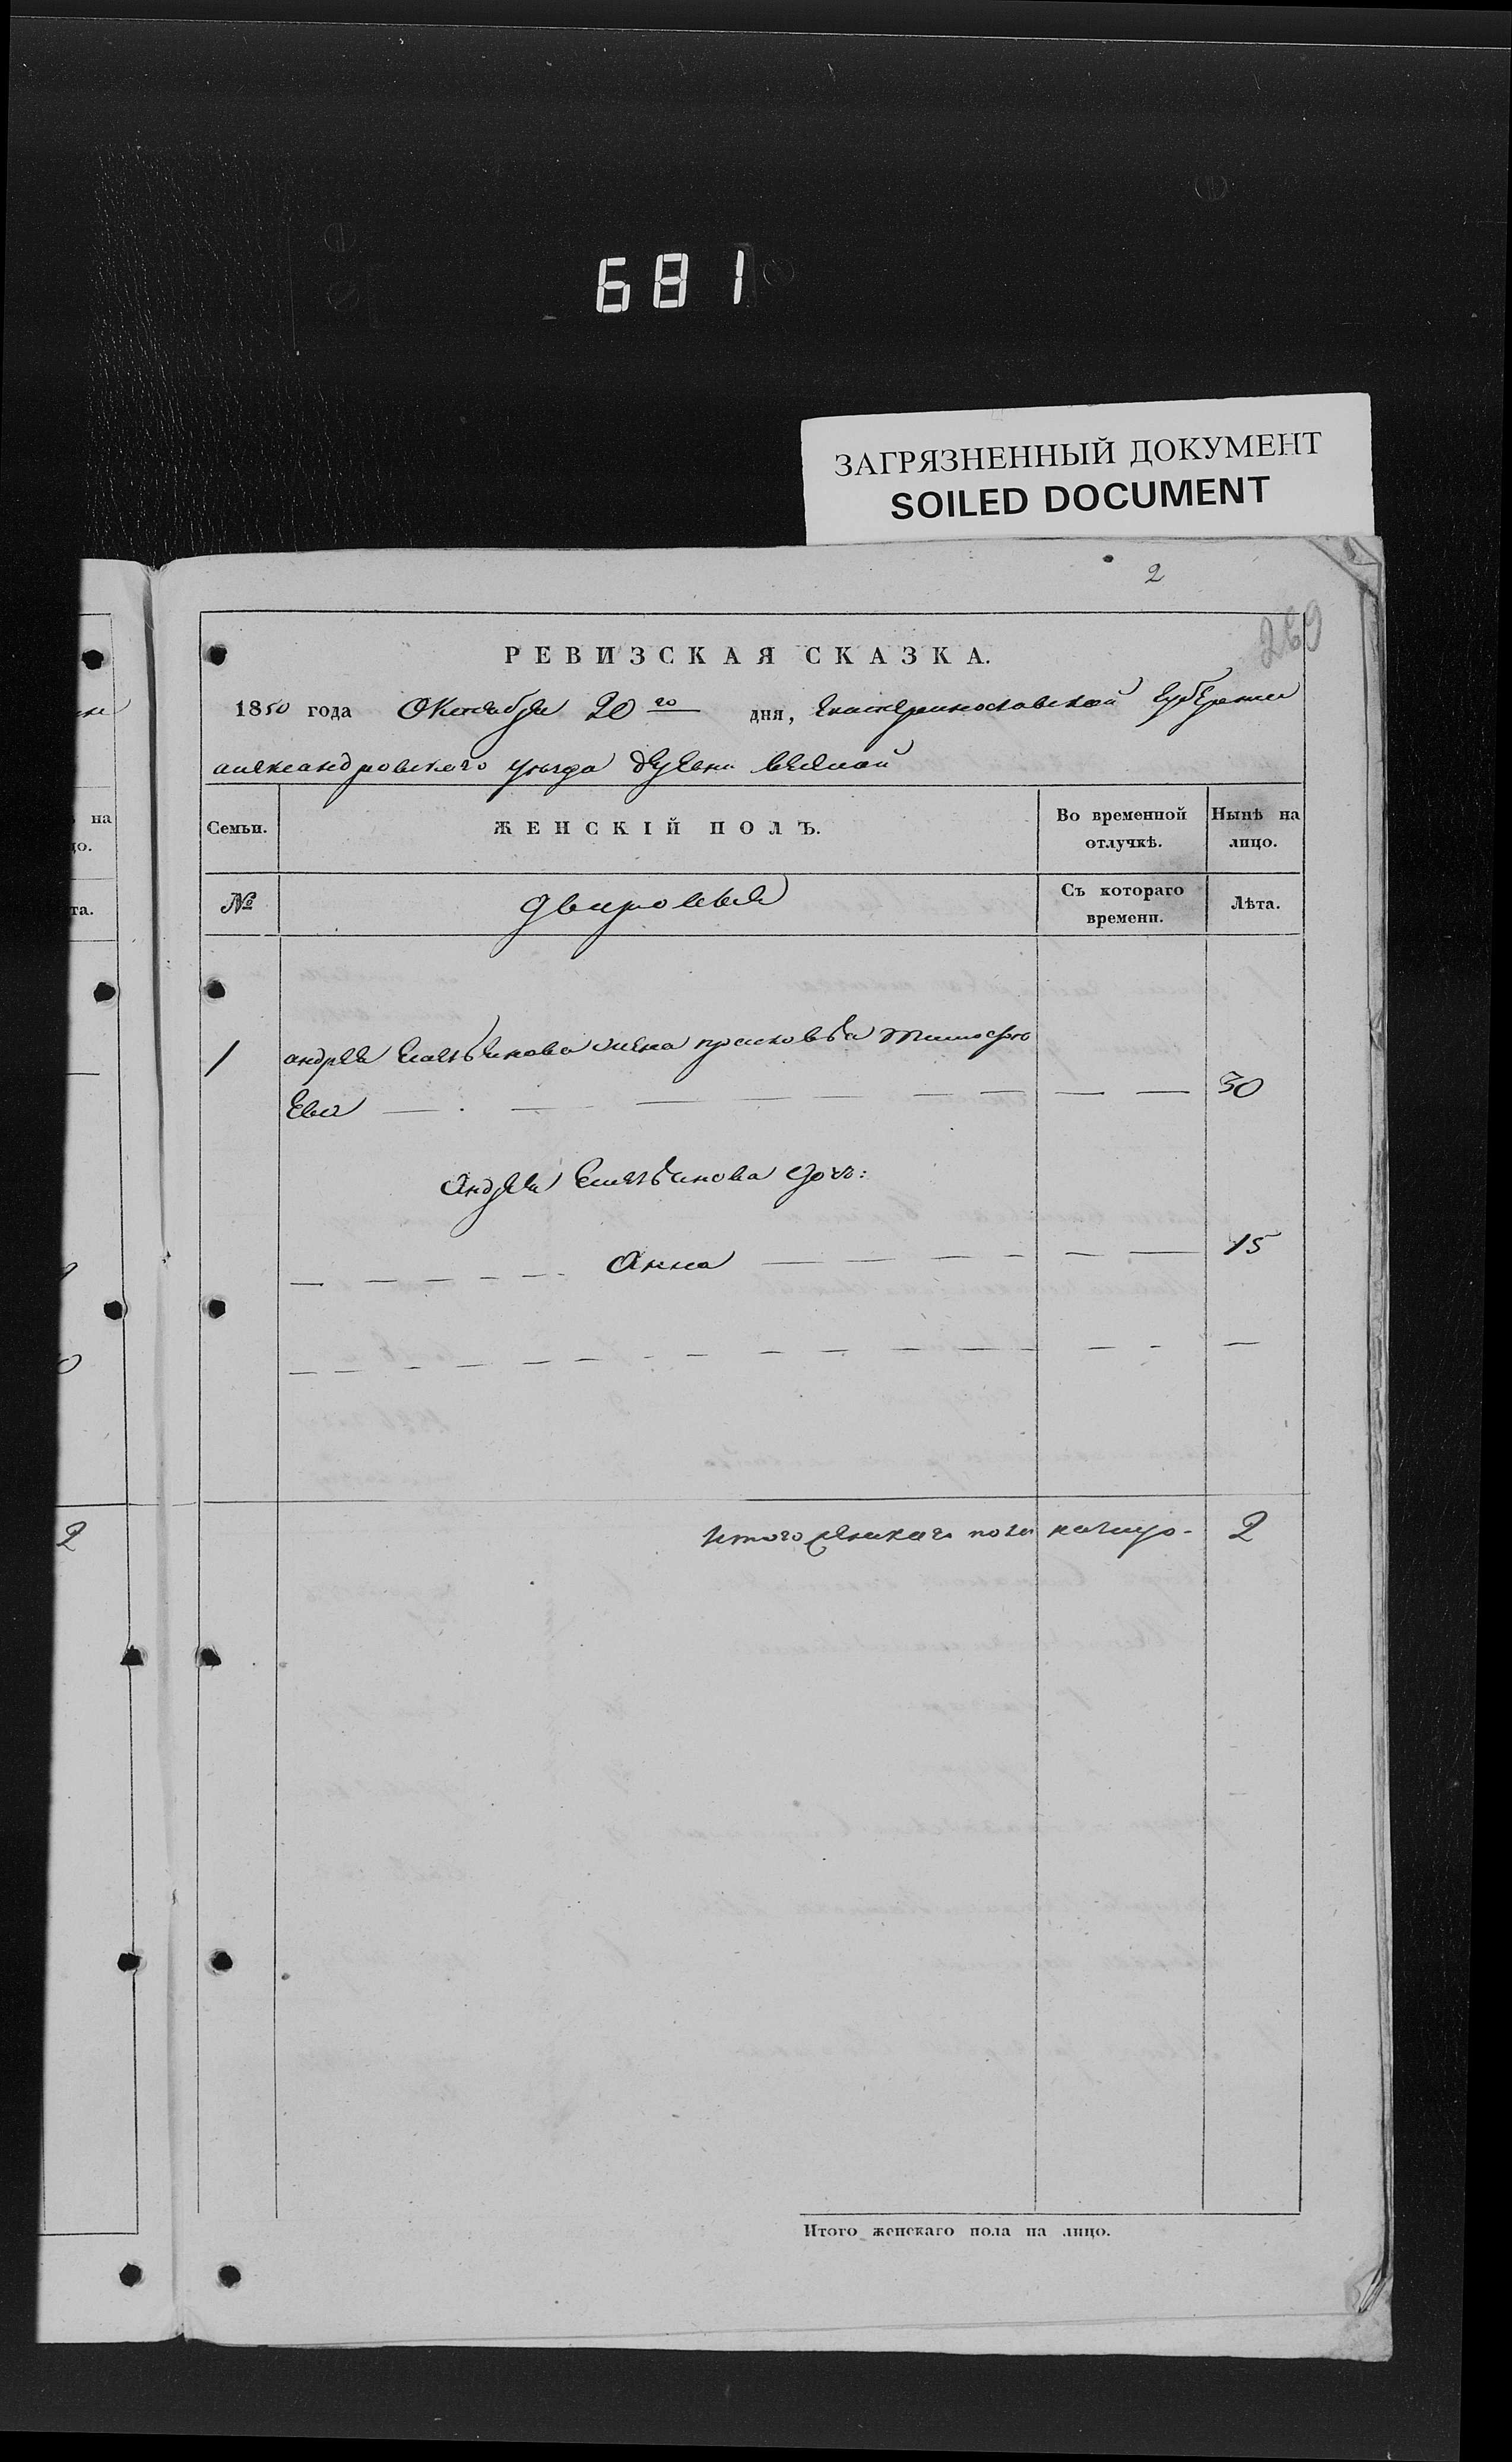 681
ЗАГРЯЗНЕННЫЙ ДОКУМЕНТ
SOILED DOCUMENT
2
РЕВИЗСКАЯ СКАЗКА.
1850 года Октября 20го дня, Екатеринославской губернии
александровского уезда
Семьи. ЖЕНСКІЙ ПОЛЪ. Во временной отлучкѣ. Нынѣ на лицо.
№ Съ котораго времени. Лѣта.
1 андрея Емельянова жена прасковья тимофе
ева 30
Андрея Емельянова дочь:
Анна 15
Итого женскаго пола налицо - 2
Итого женскаго пола на лицо.
на
та.
2